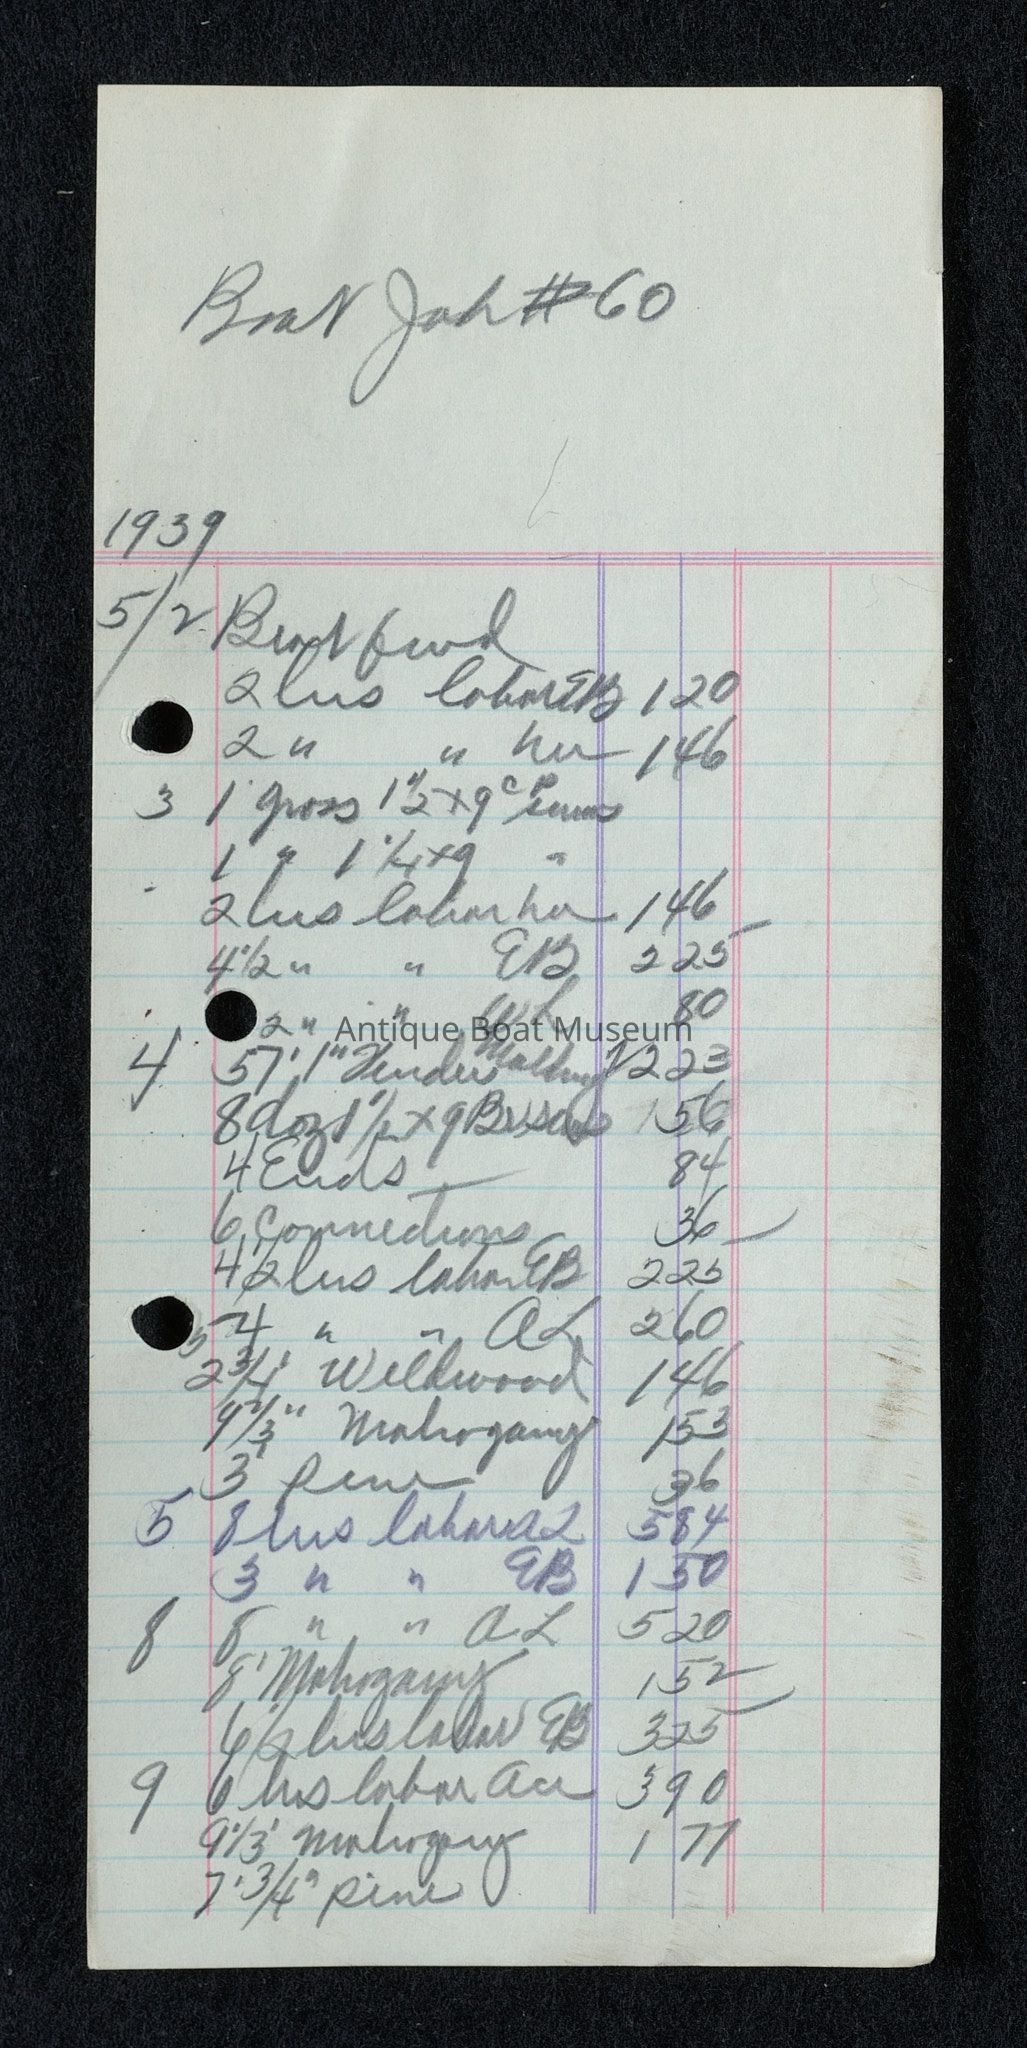 Boat Job #60
1939
5/2 Boat fwd
2 hrs labor EB 1 20
2 " " 1 46
3 1 gross 1 1/2 x 9 CP Screws
1 " 1 1/4 x 9 "
2 hrs labor 1 46
4 1/2 " " EB 2 25
2 " " 80
Antique Boat Museum
4 57' 1" Fender Molding 12 23
8 doz 1 1/2 x 9 1 56
4 Ends 84
6 Connections 36
4 1/2 hrs labor EB 2 25
4 " " AL 2 60
2 3/4' Weldwood 1 46
Mahogany 1 53
3' pine 36
5 8 hrs labor 5 84
3 " " EB 1 50
8 8 " " AL 5 20
8' Mahogany 1 52
6 1/2 hrs labor EB 3 25
9 6 hrs labor 3 90
9 1/3' Mahogany 1 77
7' 3/4" pine